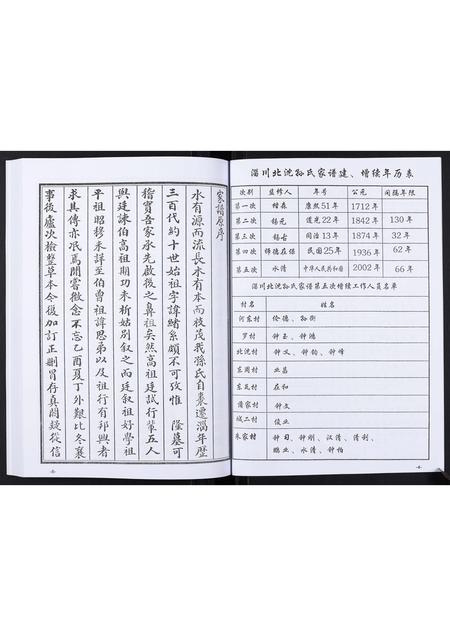 家譜原序
水有源而流長木有本而枝茂我孫氏自棗遷淄年歷
三百代約十世始祖字諱緒系頗不可攷惟 隆墓可
稽實吾家承先啟後之鼻祖矣然高祖廷試行輩五人
與廷諫伯高祖期功未析姑別叙之而廷叙祖好學祖
平祖昭移未詳至伯曾祖諱思弟以及祖行有邦興者
求其傳亦泯焉聞嘗儆念不忘乙酉夏丁外艱比冬襄
事後慮次檢整草本今後加訂正刪冒存真闕疑從信
-5-
淄川北沈孙氏家谱建、增续年历表
次别 监修人 年号 公元 间隔年限
第一次 楷森 康熙51年 1712年
第二次 锡元 道光22年 1842年 130年
第三次 锡吉 同治13年 1874年 32年
第四次 师德在保 民国25年 1936年 62年
第五次 永清 中华人民共和国 2002年 66年
淄川北沈孙氏家谱第五次增续工作人员名单
村名 姓名
何东村 伦德、孙衔
罗村 钟玉、钟鸿
北沈村 钟义、钟钧、钟峰
东周村 业基
东瓦村 在和
蒲家村 钟文
城二村 俊业
朱家村 钟习、钟刚、汉清、清利、
鹏业、永清、钟柏
-6-